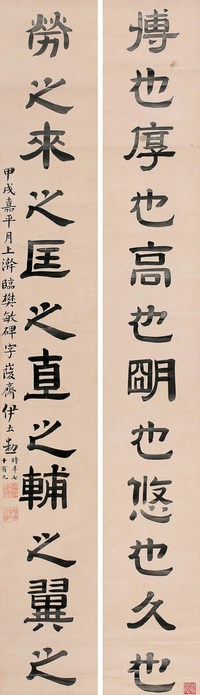 博也厚也高也明也悠也久也
勞之來之匡之直之輔之翼之
甲戌嘉平月上澣臨樊敏碑字 菠齊伊立勳
時年七十有九